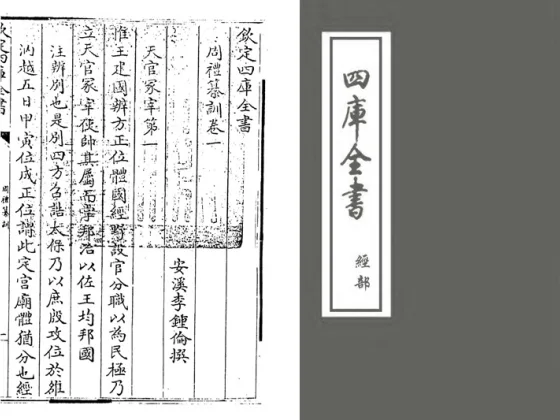 欽定四庫全書
周禮纂訓卷一
安溪李鍾倫撰
天官冢宰第一
惟王建國辨方正位體國經野設官分職以為民極乃
立天官冢宰使帥其屬而掌邦治以佐王均邦國
注辨別也是別四方召誥太保乃以庶殷攻位於雒
汭越五日甲寅位成正位謂此定宮廟體猶分也經
欽定四庫全書
周禮纂訓
四庫全書
經部